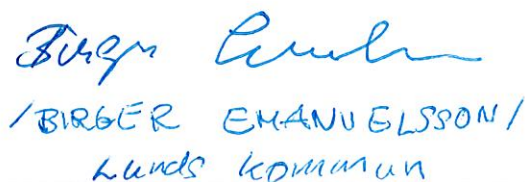 Birger Emanuelsson
/BIRGER EMANUELSSON/
Lunds kommun